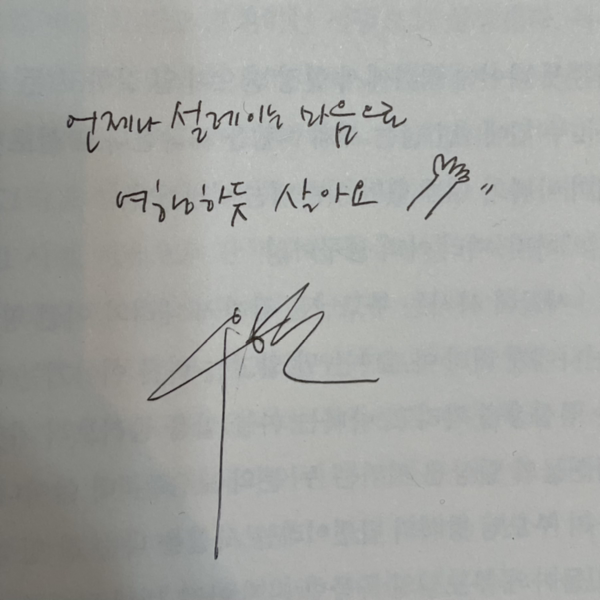 언제나 설레이는 마음으로
여행하듯 살아요